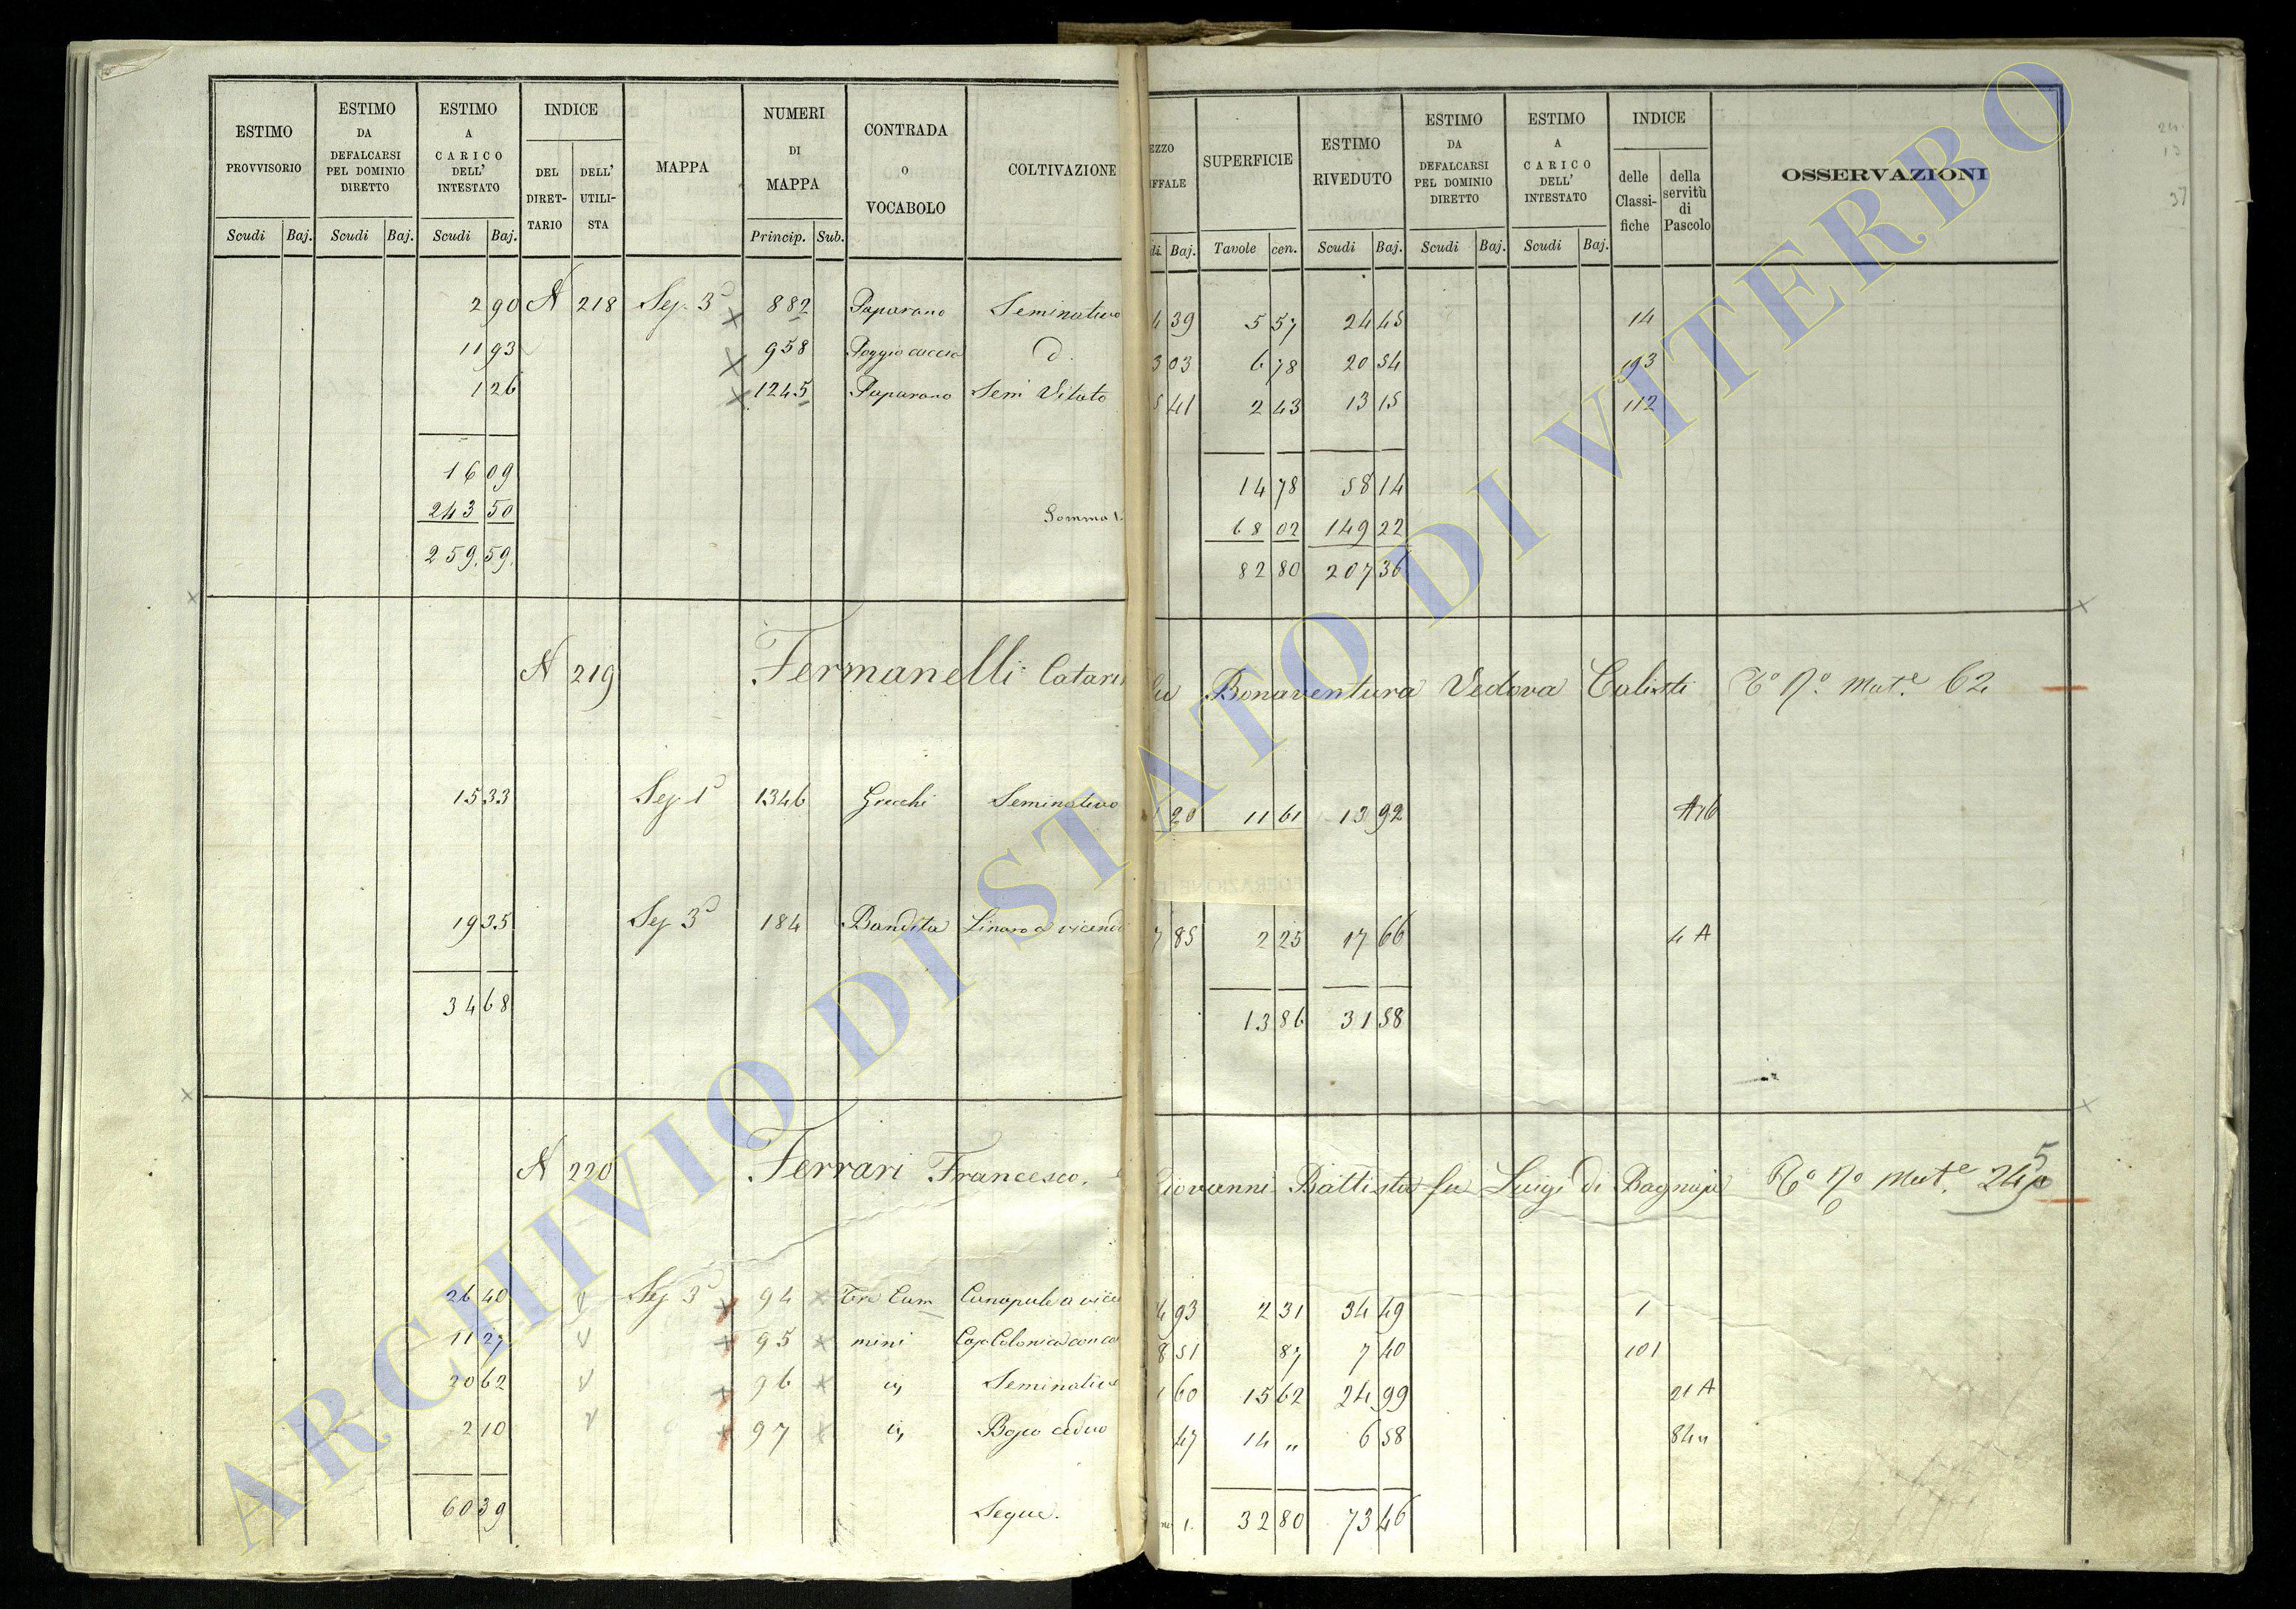 ESTIMO PROVVISORIO
ESTIMO DA DEFALCARSI PEL DOMINIO DIRETTO
ESTIMO A CARICO DELL' INTESTATO
INDICE
DEL DIRET-TARIO
DELL' UTILI-STA
MAPPA
NUMERI DI MAPPA
CONTRADA o VOCABOLO
COLTIVAZIONE
EZZO IFFALE
SUPERFICIE
ESTIMO RIVEDUTO
ESTIMO DA DEFALCARSI PEL DOMINIO DIRETTO
ESTIMO A CARICO DELL' INTESTATO
INDICE
delle Classi-fiche
della servitù di Pascolo
OSSERVAZIONI
Scudi Baj. Scudi Baj. Scudi Baj. Princip. Sub. di Baj. Tavole cen. Scudi Baj. Scudi Baj. Scudi Baj.
2 90 N 218 Sez. 3ª 882 Paparano Seminativo 4 39 5 57 24 45 14
11 93 958 Poggio d. 3 03 6 78 20 54 193
1 26 1245 Paparano Semi Vitato 5 41 2 43 13 15 112
16 09 14 78 58 14
243 50 Somma 68 02 149 22
259.59. 82 80 207 36
N 219 Fermanelli Catari fu Bonaventura Vedova Calisti Tº Nº Mate 62
15 33 Sez 1ª 1346 Grecchi Seminativo 1 20 11 61 13 92 A16
19 35 Sez 3ª 184 Bandita Linaro a vicend 7 85 2 25 17 66 4 A
34 68 13 86 31 58
N 220 Ferrari Francesco, Giovanni Battista fu Luigi di Bagnaja Nº Mate 245
26 40 Sez 3ª 94 Tre Cam Canapule a vice 4 93 2 31 34 49 1
11 27 95 mini Casa Colonica con co 8 51 87 7 40 101
20 62 96 ivi Seminativo 1 60 15 62 24 99 21 A
2 10 97 ivi Bosco ceduo 47 14 „ 6 58 84
60 39 Segue. 1. 32 80 73 46
ARCHIVIO DI STATO DI VITERBO